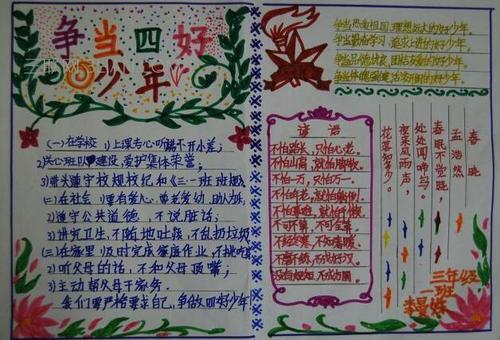 争当四好
少年
(一)在学校 1)上课专心听讲不开小差;
2)关心班队建设,爱护集体荣誉;
3)带头遵守校规校纪和《三·一班班规》
(二)在社会 1)要有爱心,尊老爱幼,助人为乐;
2)遵守公共道德,不说脏话;
3)讲究卫生,不随地吐痰,不乱扔垃圾
(三)在家里 1)及时完成家庭作业,不挑吃
2)听父母的话,不和父母顶嘴;
3)主动帮父母干家务。
我们要严格要求自己,争做四好少年!
争当热爱祖国,理想远大的好少年。
争当勤奋学习,追求上进的好少年。
争当品德优良,团结友爱的好少年。
争当体魄强健,活泼开朗的好少年。
谚语
不怕路长,只怕心老。
不怕山高,就怕脚软。
不怕一万,只怕万一。
不可不算,不可全算。
不经冬寒,不知春暖
不磨不炼,不成好汉。
春晓
孟浩然
春眠不觉晓,
处处闻啼鸟。
夜来风雨声,
花落知多少。
三年级
一班